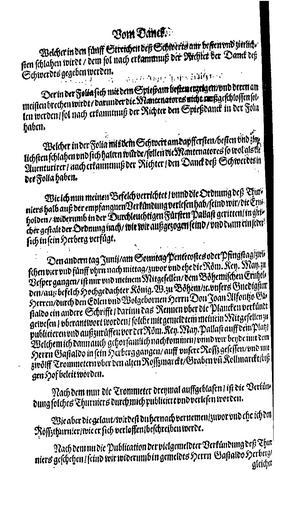 Vom Danck.
Welcher in den fünff Streichen deß Schwerts am besten vnd zierlich-
sten schlahen wirdt / dem sol nach erkanntnuß der Richter der Danck deß
Schwerdts gegeben werden.
Der in der Folia sich mit dem Spieß am besten erzeigen / vnd deren am
meisten brechen wirdt / darunder die Mantenatores nicht außgeschlossen sol-
len werden / sol nach erkanntnuß der Richter den Spießdanck in der Folia
haben.
Welcher in der Folia mit dem Schwert am dapffersten / besten vnd zier-
lichsten schlahen vnd sich halten würde / sollen die Mantenatores so wol als die
Auenturirer / nach erkanntnuß der Richter / den Danck deß Schwerdts in
der Folia haben.
Wie ich nun meinen Befelch verrichtet / vnnd die Ordnung deß Thur-
niers halb auß der empfangenen Verkündung verlesen hab / seind wir / die Ern-
holden / widerumb in der Durchleuchtigsten Fürsten Pallast geritten / in glei-
cher gestalt der Ordnung nach / wie wir außgezogen seind / vnd dann ein jeder
sich in sein Herberg verfügt.
Den andern tag Junij / am Sonntag Pentecostes oder Pfingstag / zwi-
schen vier vnd fünff vhrn nach mittag / zuvor vnd ehe die Röm. Key. May. zu
Vesper gangen / ist mir vnd meinem Mitgesellen / dem Böhemischen Ernhol-
den / auß befelch Hochgedachter König. W. zu Böhem / ꝛc. vnsers Gnedigsten
Herren / durch den Edlen vnd Wolgebornen Herrn Don Joan Alfonso Ga-
staldo ein andere Schrifft / darinn das Rennen vber die Plancken verkündt
gewesen / vberantwort worden / solche mit gemeldtem meinem Mitgesellen zu
publicieren vnd außzurüffen vor der Röm. Key. May. Pallast auff dem Platz.
Welchem ich dann auch gehorsamlich nachkommen / vnnd wir beyde mit dem
Herrn Gastaldo in sein Herberg gangen / auff vnsere Roß gesessen / vnd mit
zwölff Trommetern vber den alten Roßmarckt / Graben vñ Kollmarckt / biß
gen Hof beleit worden.
Nach dem nun die Trommeter dreymal auffgeblasen / ist die Verkün-
dung solches Thurniers durch mich publiciert vnd verlesen worden.
Wie aber die gelaut / wirdest du hernach vernemen / zuvor vnd ehe ich den
Roßthurnier / wie er sich verlassen / beschreiben werde.
Nach dem nu die Publication der vielgemeldter Verkündung deß Thur-
niers geschehen / seind wir widerumb in gemeldts Herrn Gastaldo Herberg /
gleicher